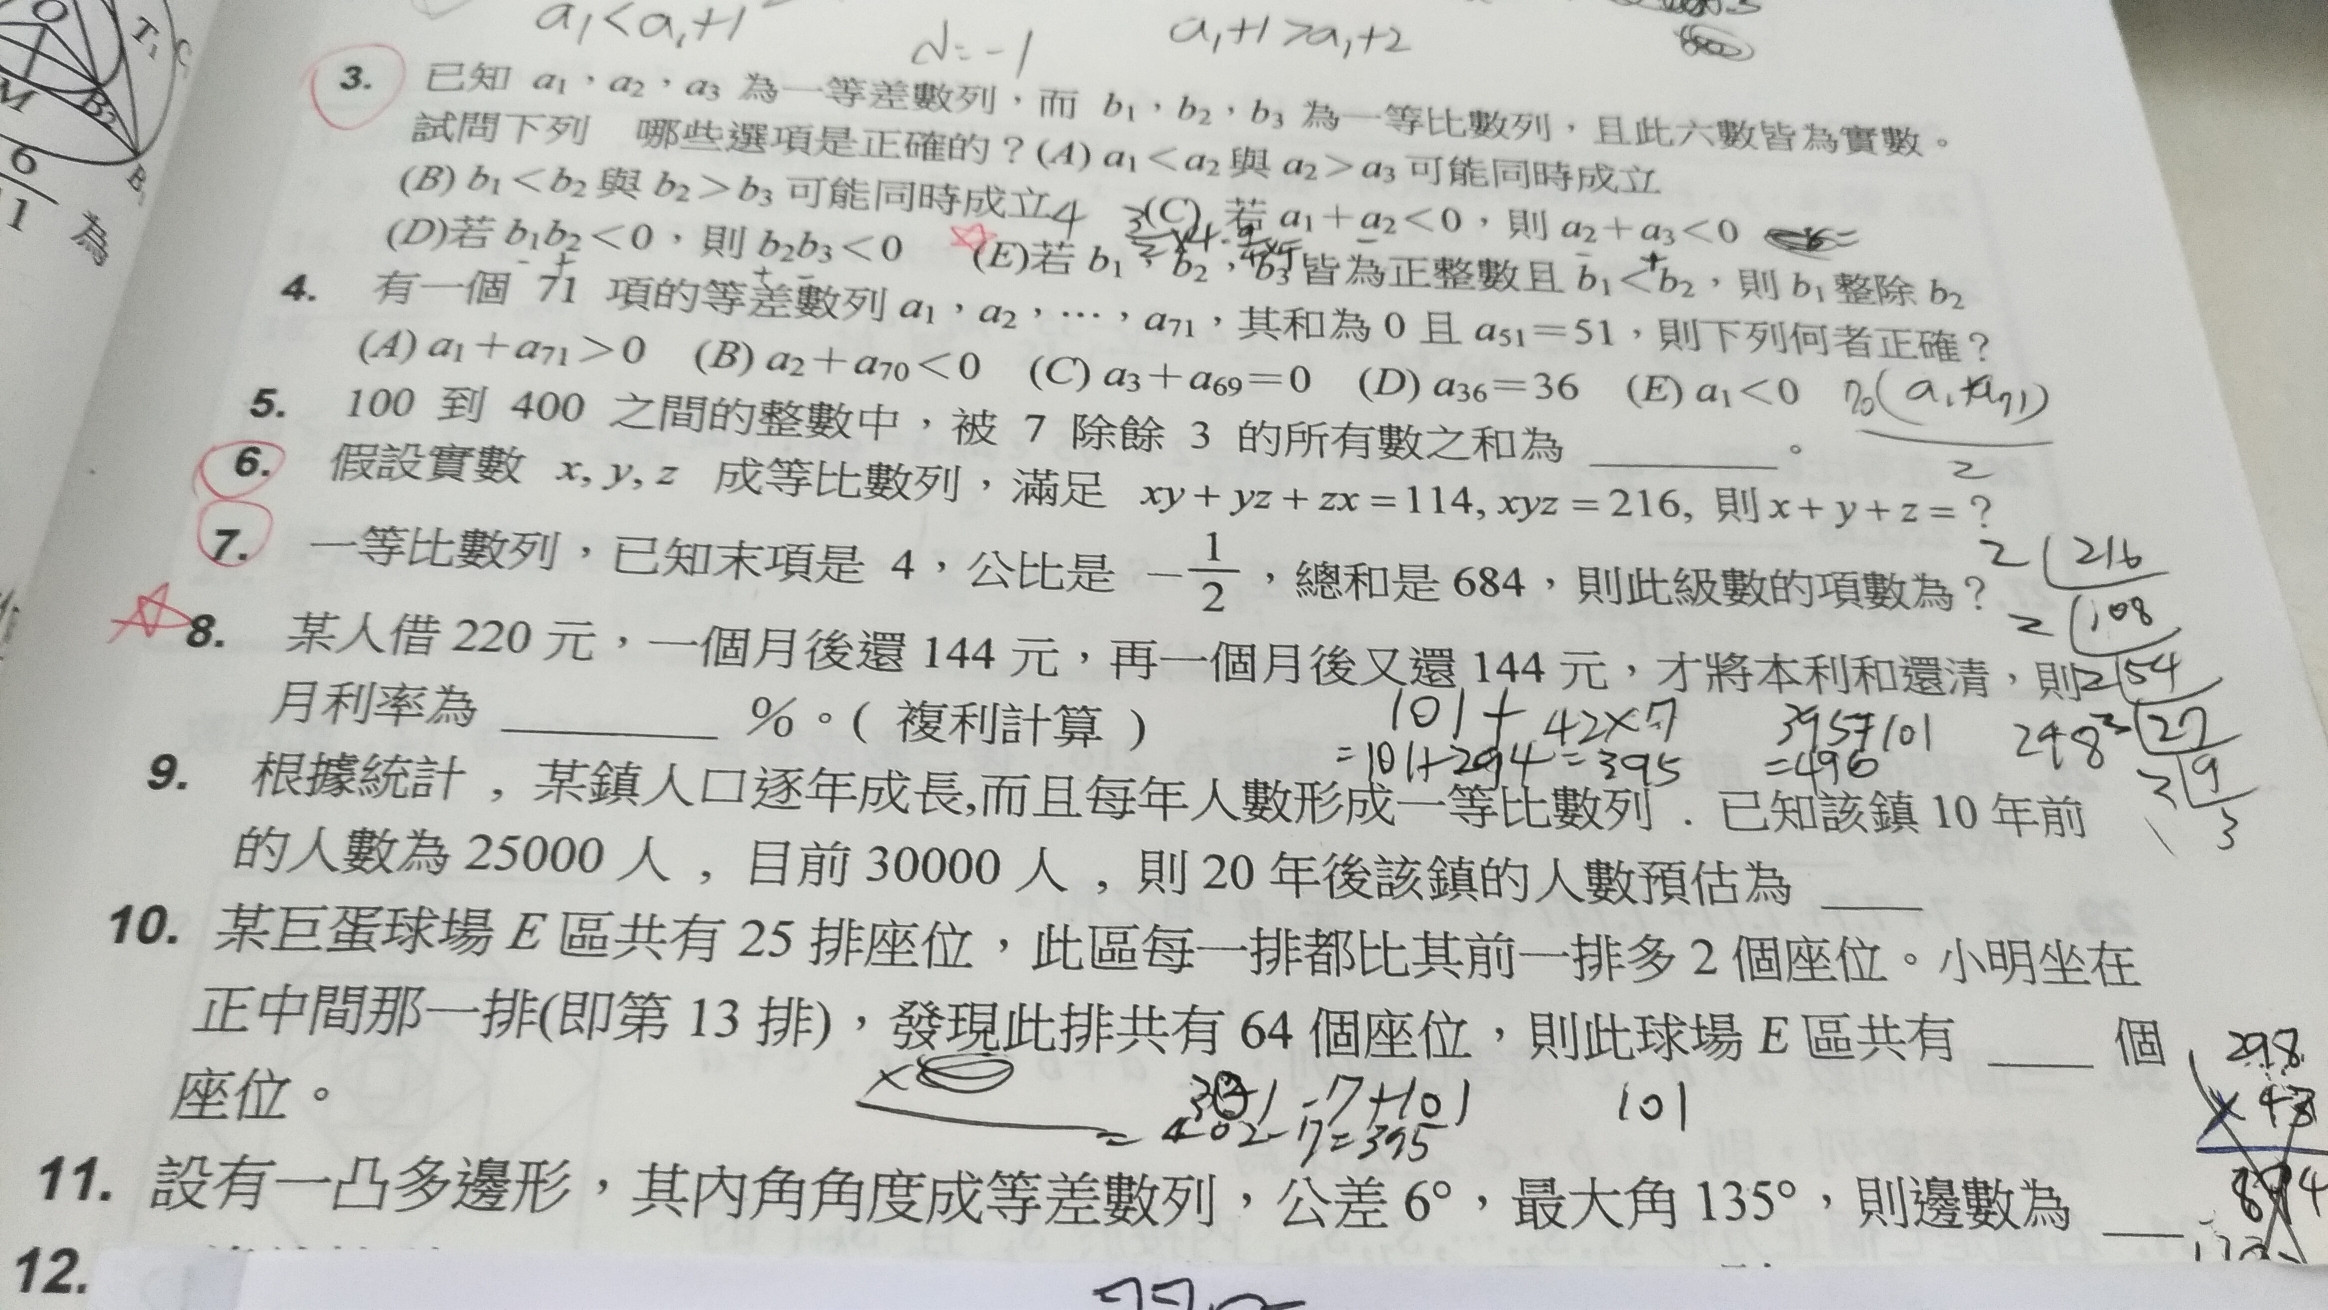 a₁<a₁+1
d=-1
a₁+1>a₁+2
T₁
C₁
M
B₂
B₁
6
1
為
3. 已知 a₁,a₂,a₃ 為一等差數列,而 b₁,b₂,b₃ 為一等比數列,且此六數皆為實數。
試問下列 哪些選項是正確的?(A) a₁<a₂與 a₂>a₃可能同時成立
(B) b₁<b₂與 b₂>b₃ 可能同時成立 (C) 若 a₁+a₂<0,則 a₂+a₃<0
(D)若 b₁b₂<0,則 b₂b₃<0 (E)若 b₁,b₂,b₃皆為正整數且 b₁<b₂,則 b₁整除 b₂
4. 有一個 71 項的等差數列 a₁,a₂,…,a₇₁,其和為 0 且 a₅₁=51,則下列何者正確?
(A) a₁+a₇₁>0 (B) a₂+a₇₀<0 (C) a₃+a₆₉=0 (D) a₃₆=36 (E) a₁<0
5. 100 到 400 之間的整數中,被 7 除餘 3 的所有數之和為 ______。
2
6. 假設實數 x, y, z 成等比數列,滿足 xy+yz+zx=114, xyz=216, 則x+y+z=?
7. 一等比數列,已知末項是 4,公比是 −1/2,總和是 684,則此級數的項數為?
2 216
2 108
8. 某人借 220 元,一個月後還 144 元,再一個月後又還 144 元,才將本利和還清,則
2 54
月利率為 ______ %。( 複利計算 )
101+42×7
=101+294=395
395+101
=496
298
27
3 9
3
9. 根據統計 , 某鎮人口逐年成長,而且每年人數形成一等比數列 . 已知該鎮 10 年前
的人數為 25000 人 , 目前 30000 人 , 則 20 年後該鎮的人數預估為 ____
10. 某巨蛋球場 E 區共有 25 排座位,此區每一排都比其前一排多 2 個座位。小明坐在
正中間那一排(即第 13 排),發現此排共有 64 個座位,則此球場 E 區共有 ____ 個
座位。
-7+101
=402-7=395
101
298
×43
894
11. 設有一凸多邊形,其內角角度成等差數列,公差 6°,最大角 135°,則邊數為 ____
12.